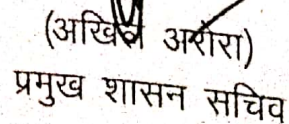 (अखिल अरोरा)
प्रमुख शासन सचिव